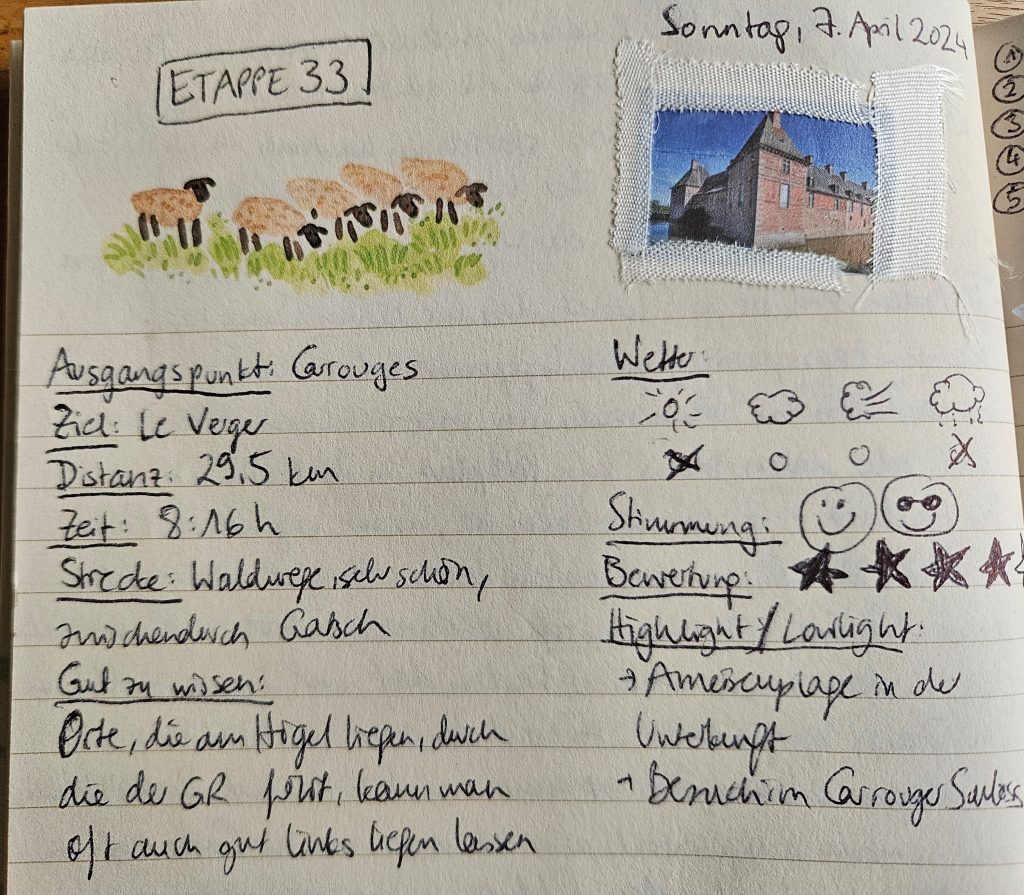 Sonntag, 7. April 2024
ETAPPE 33
1
2
3
4
5
Ausgangspunkt: Carrouges
Ziel: Le Verger
Distanz: 29,5 km
Zeit: 8:16 h
Strecke: Waldwege, sehr schön,
zwischendurch Gatsch
Gut zu wissen:
Orte, die am Hügel liegen, durch
die der GR führt, kann man
oft auch gut links liegen lassen
Wetter:
Stimmung:
Bewertung:
Highlight / Lowlight:
→ Ameisenplage in der
Unterkunft
→ Besuch im Carrouger Schloss